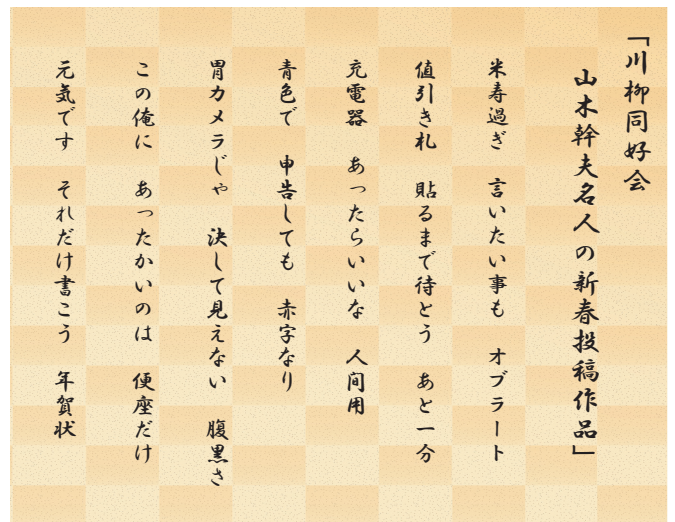 「川柳同好会
山木幹夫名人の新春投稿作品」
米寿過ぎ　言いたい事も　オブラート
値引き札　貼るまで待とう　あと一分
充電器　あったらいいな　人間用
青色で　申告しても　赤字なり
胃カメラじゃ　決して見えない　腹黒さ
この俺に　あったかいのは　便座だけ
元気です　それだけ書こう　年賀状